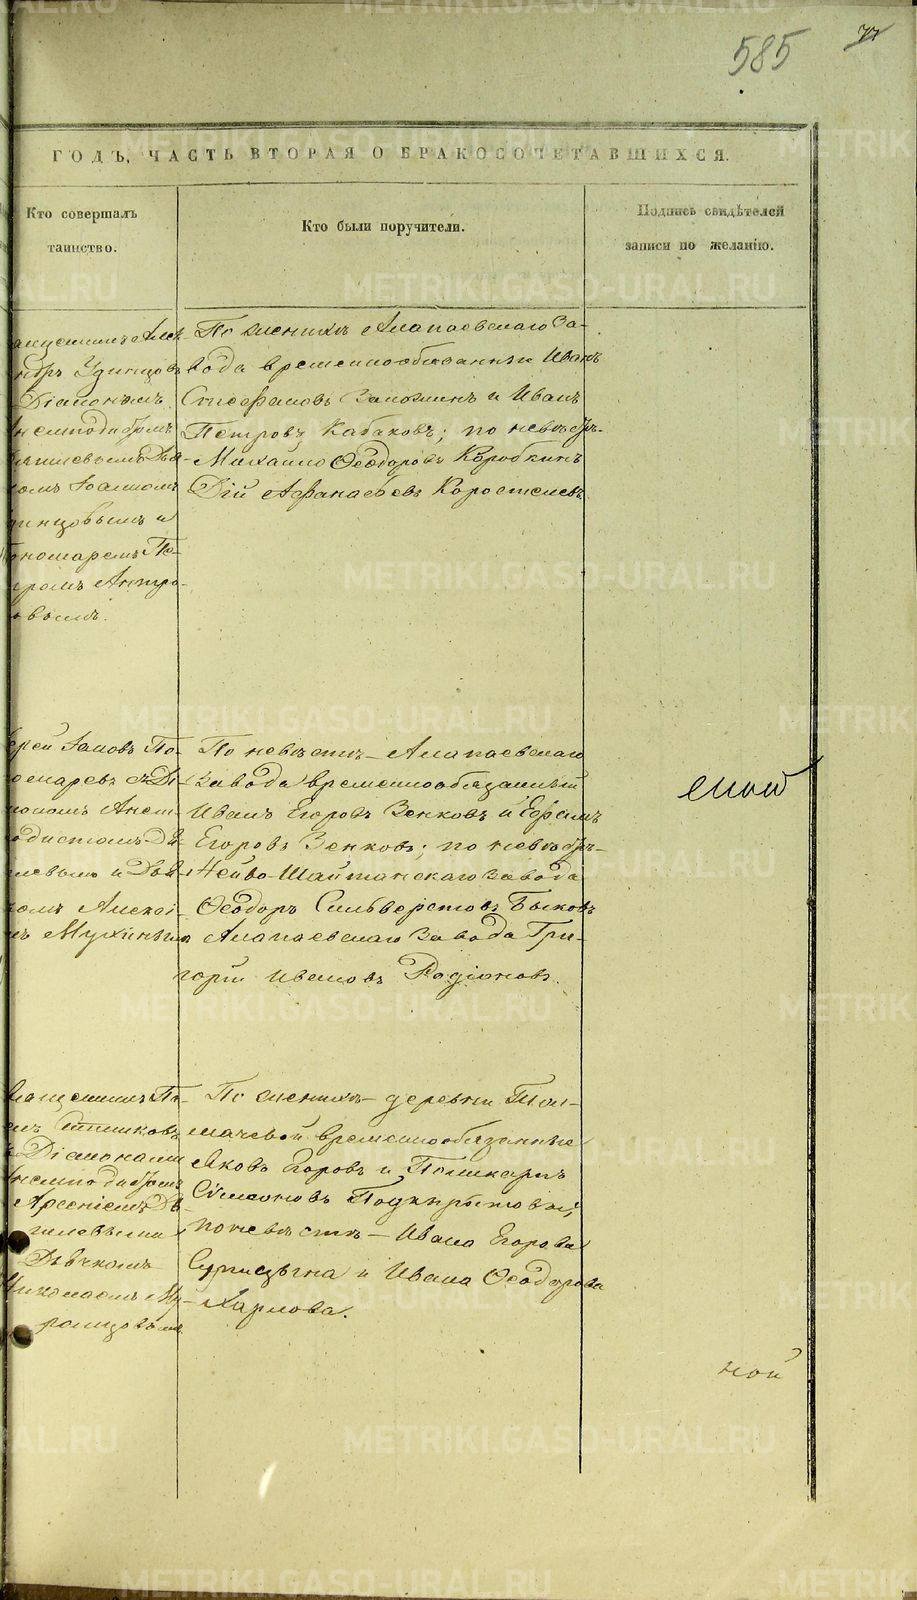 585
77
ГОДЪ, ЧАСТЬ ВТОРАЯ О БРАКОСОЧЕТАВШИХСЯ.
Кто совершалъ
таинство.
Кто были поручители.
Подпись свидѣтелей
записи по желанію.
Удинцовъ
Діакономъ
Іоанномъ
динцовымъ и
ономаремъ Пе-
тромъ Антро-
овымъ.
По женихѣ Алапаевскаго За-
вода временнообязанные Иванъ
Стефановъ Заложинъ и Иванъ
Петровъ Кабаковъ; по невѣстѣ-
Михайло Ѳеодоровъ Коробкинъ
Дій Аѳанасьевъ Коростелевъ.
ерей Іаковъ По-
номаревъ съ Ді-
акономъ Анем-
подистомъ Дя-
гилевымъ и Дья-
комъ Алексѣ-
мъ Мухинымъ
По невѣстѣ Алапаевскаго
Завода временнообязанный
Иванъ Егоровъ Зенковъ и Ефимъ
Егоровъ Зенковъ; по невѣстѣ-
Нейво-Шайтанскаго завода
Ѳеодоръ Сильверстовъ Быковъ
и Алапаевскаго Завода Гри-
горій Ивановъ Родіоновъ.
Діаконами
Арсеніемъ Дя-
гилевыми
Дьячкомъ
Николаемъ Му-
ромцовымъ
По женихѣ деревни Тол-
мачевой временнообязанные
Яковъ Егоровъ и Поликарпъ
Симеоновъ Подкорытовы;
по невѣстѣ - Ивана Егорова
и Ивана Ѳеодорова
Харлова.
ной